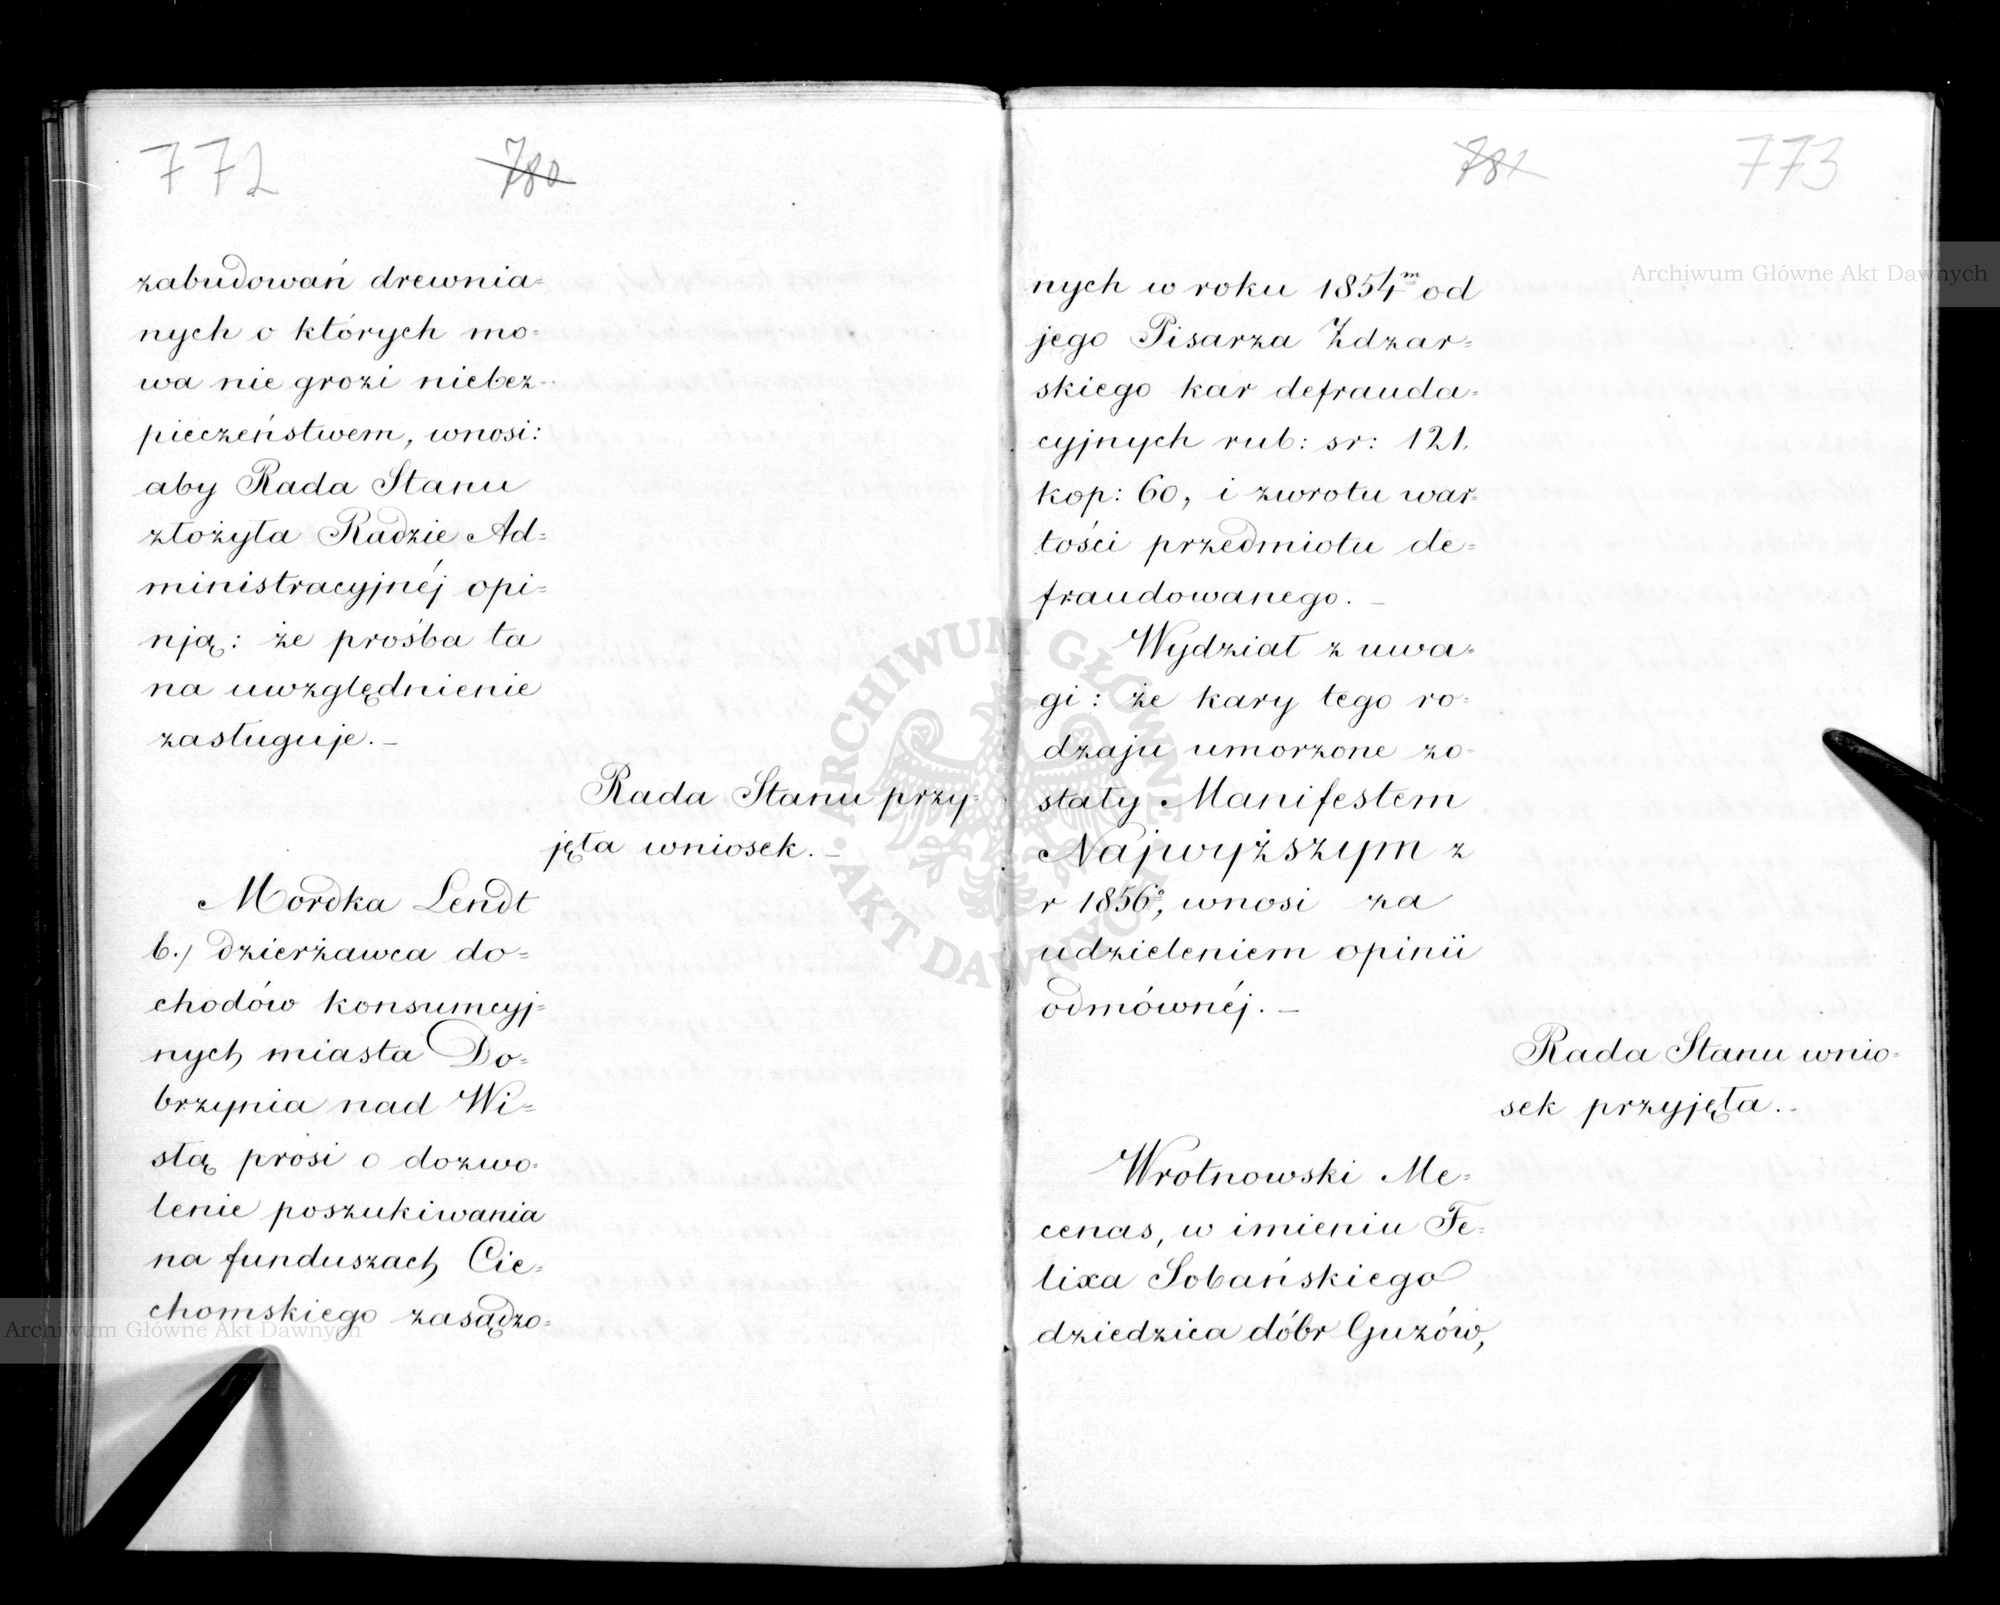 772
780
zabudowań drewnia=
nych o których mo=
wa nie grozi niebez=
pieczeństwem, wnosi:
aby Rada Stanu
złożyła Radzie Ad=
ministracyjnéj opi=
nją: że prośba ta
na uwzględnienie
zasługuje.–
Rada Stanu przy=
jęła wniosek.–
Mordka Lendt
b./ dzierżawca do=
chodów konsumcyj=
nych miasta Do=
brzynia nad Wi=
słą prosi o dozwo=
lenie poszukiwania
na funduszach Cie=
chomskiego zasądzo=
781
773
nych w roku 1854m od
jego Pisarza Zdzar=
skiego kar defrauda=
cyjnych rub: sr: 121.
kop: 60, i zwrotu war=
tości przedmiotu de=
fraudowanego.–
Wydział z uwa=
gi: że kary tego ro=
dzaju umorzone zo=
stały Manifestem
Najwyższym z
r 1856o, wnosi za
udzieleniem opinii
odmównéj.–
Rada Stanu wnio=
sek przyjęła.–
Wrotnowski Me=
cenas, w imieniu Fe=
lixa Sobańskiego
dziedzica dóbr Guzów,
Archiwum Główne Akt Dawnych
ARCHIWUM GŁÓWNE
AKT DAWNYCH
Archiwum Główne Akt Dawnych